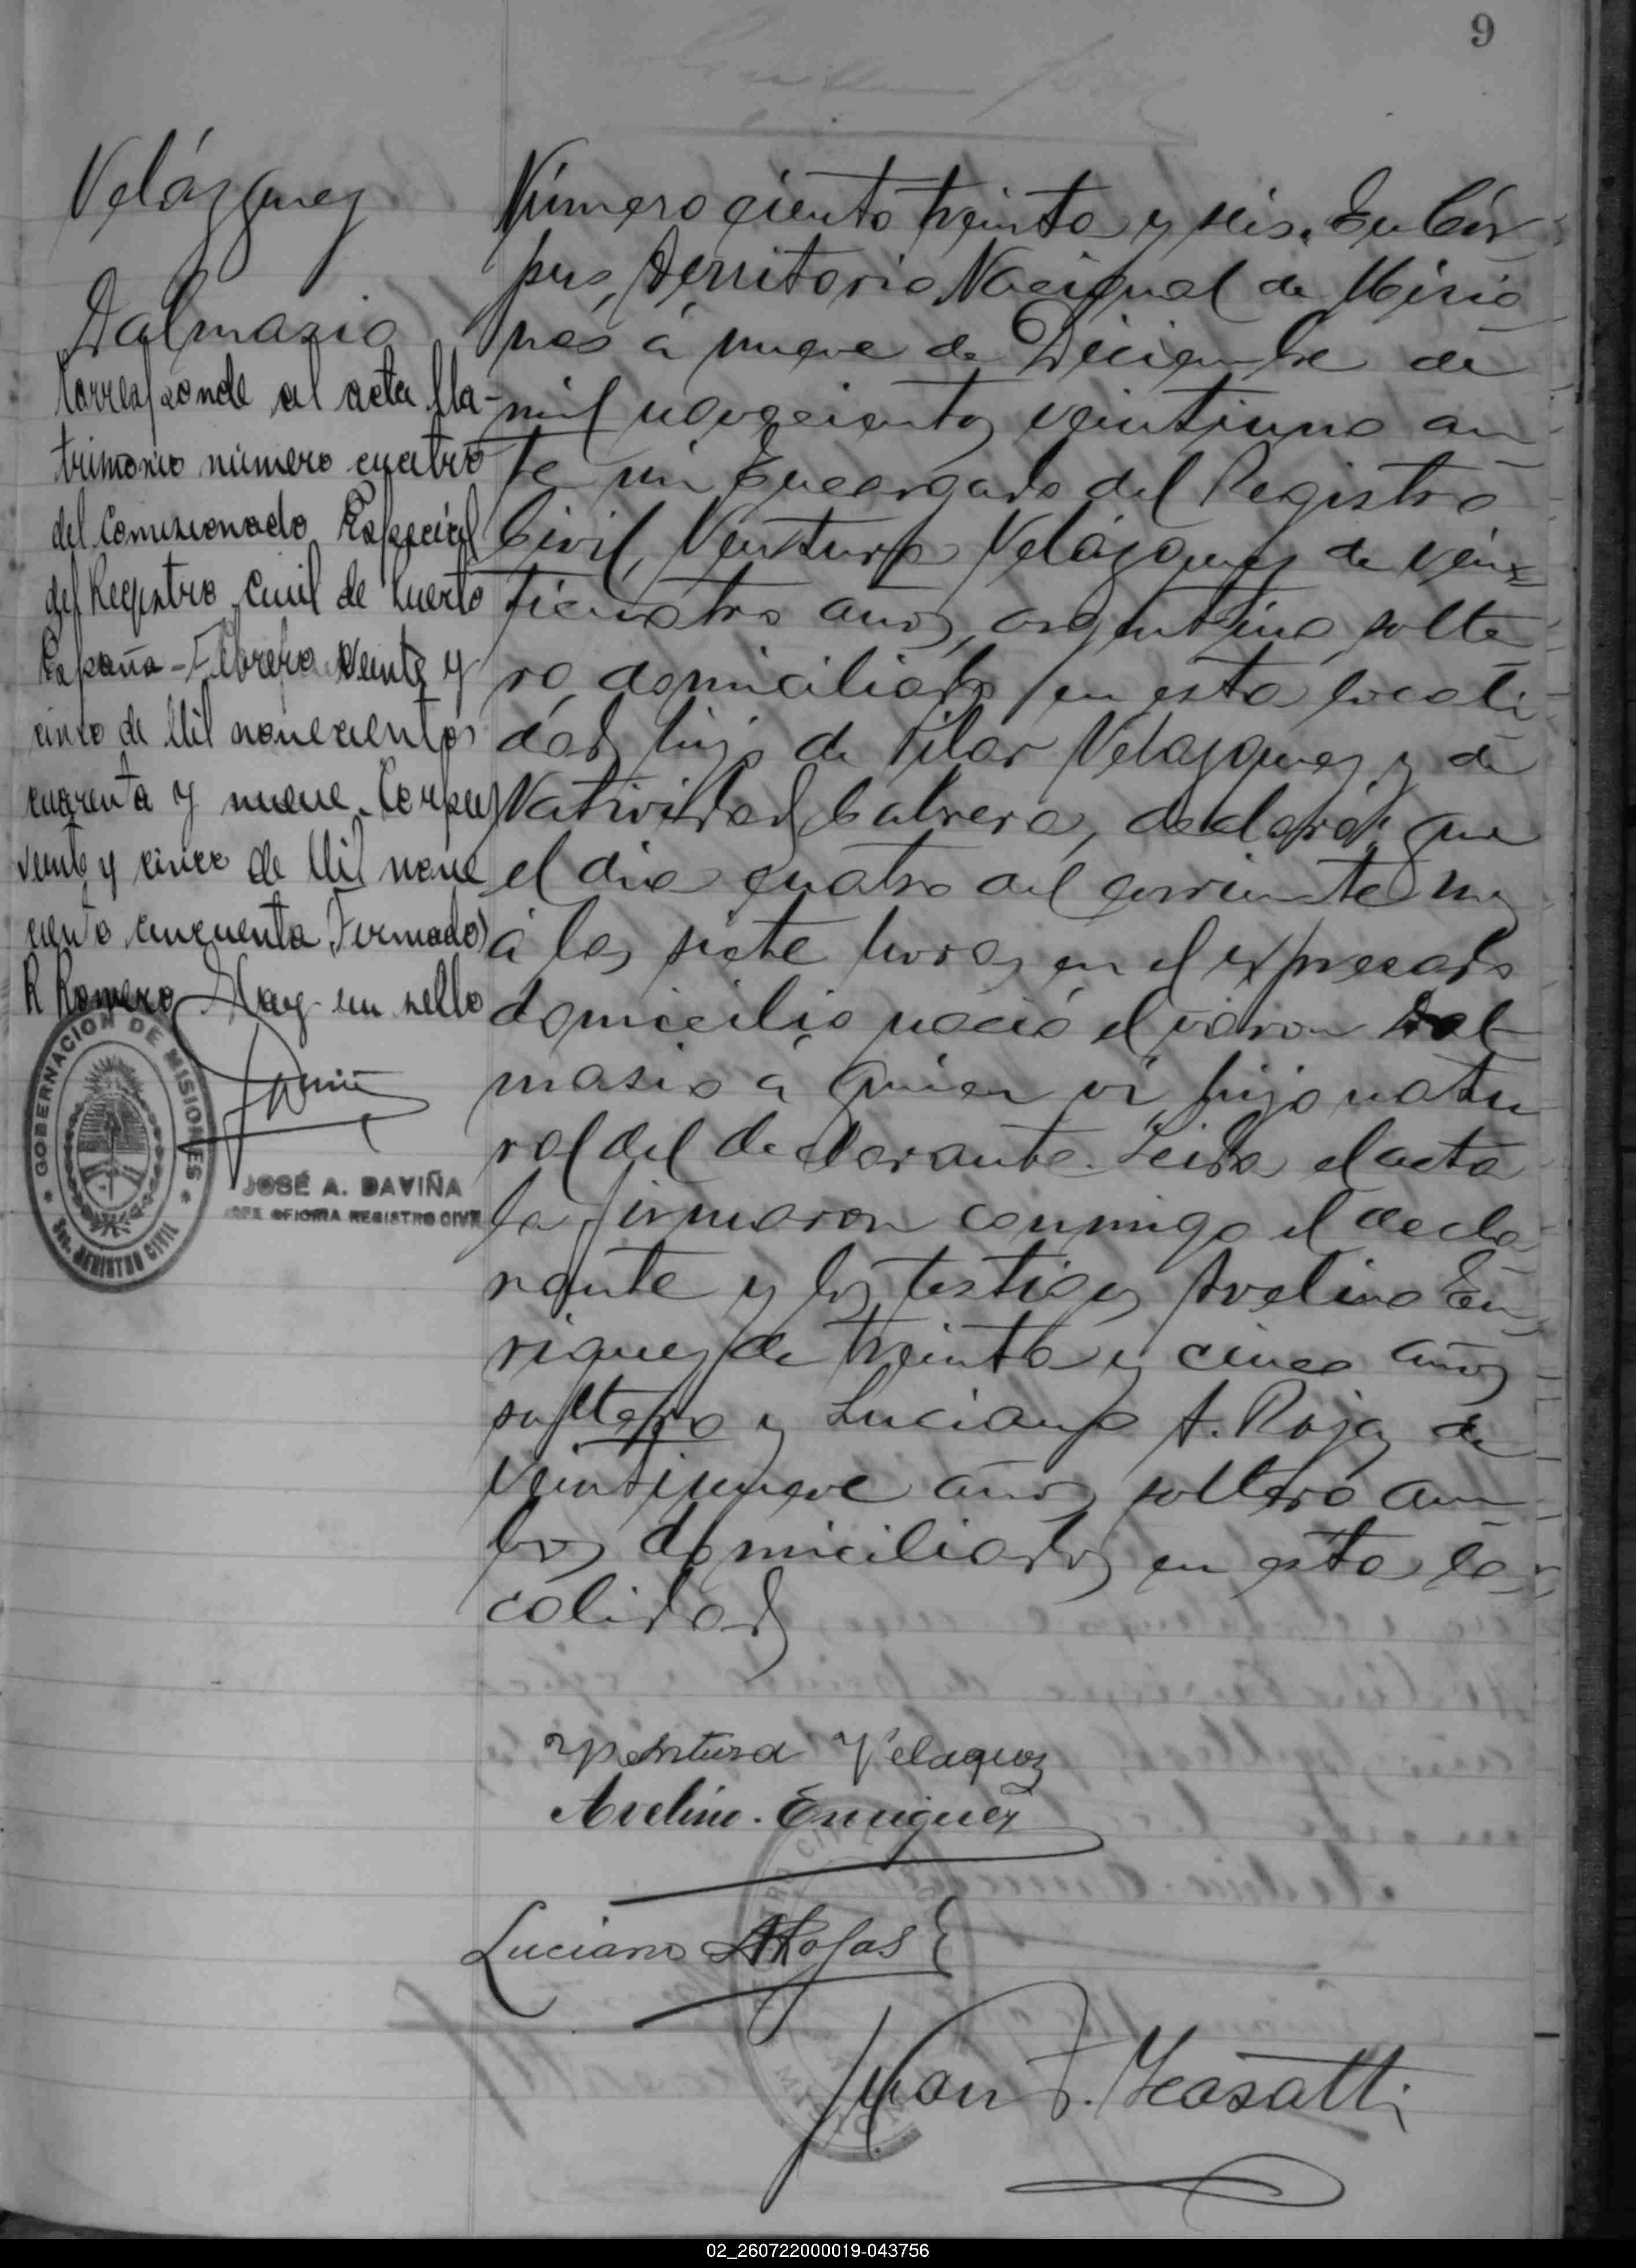 9
Velázquez
Dalmasio
Corresponde al acta Ma-
trimonio número cuatro
del Comisionado Especial
del Registro Civil de Puerto
España - Febrero veinte y
cinco de Mil novecientos
cuarenta y nueve. Corpus
veinte y cinco de Mil nove
ciento cincuenta (Firmado)
R Romero Hay un sello
GOBERNACION DE MISIONES
REGISTRO CIVIL
JOSÉ A. DAVIÑA
JEFE OFICINA REGISTRO CIVIL
Número ciento treinta y seis. En Cór
pus, Territorio Nacional de Misio
nes á nueve de Diciembre de
mil novecientos veintiuno an
te mi Encargado del Registro
Civil, Ventura Velázquez de vein
ticuatro años, argentino, solte
ro, domiciliado en esta locali
dad, hijo de Pilar Velazquez y de
Natividad Cabrera, declaró: que
el dia cuatro del corriente mes
á las siete horas en el expresado
domicilio nació el varon Dal
masio á quien vi, hijo natu
ral del declarante. Leida el acta
la firmaron conmigo el decla
rante y los testigos Avelino En
riquez de treinta y cinco años
soltero y Luciano A. Rojas de
veintinueve años soltero am
bos domiciliados en esta lo
calidad
Ventura Velaquez
Avelino. Enriquez
Luciano A Rojas
Juan F.
02_260722000019-043756